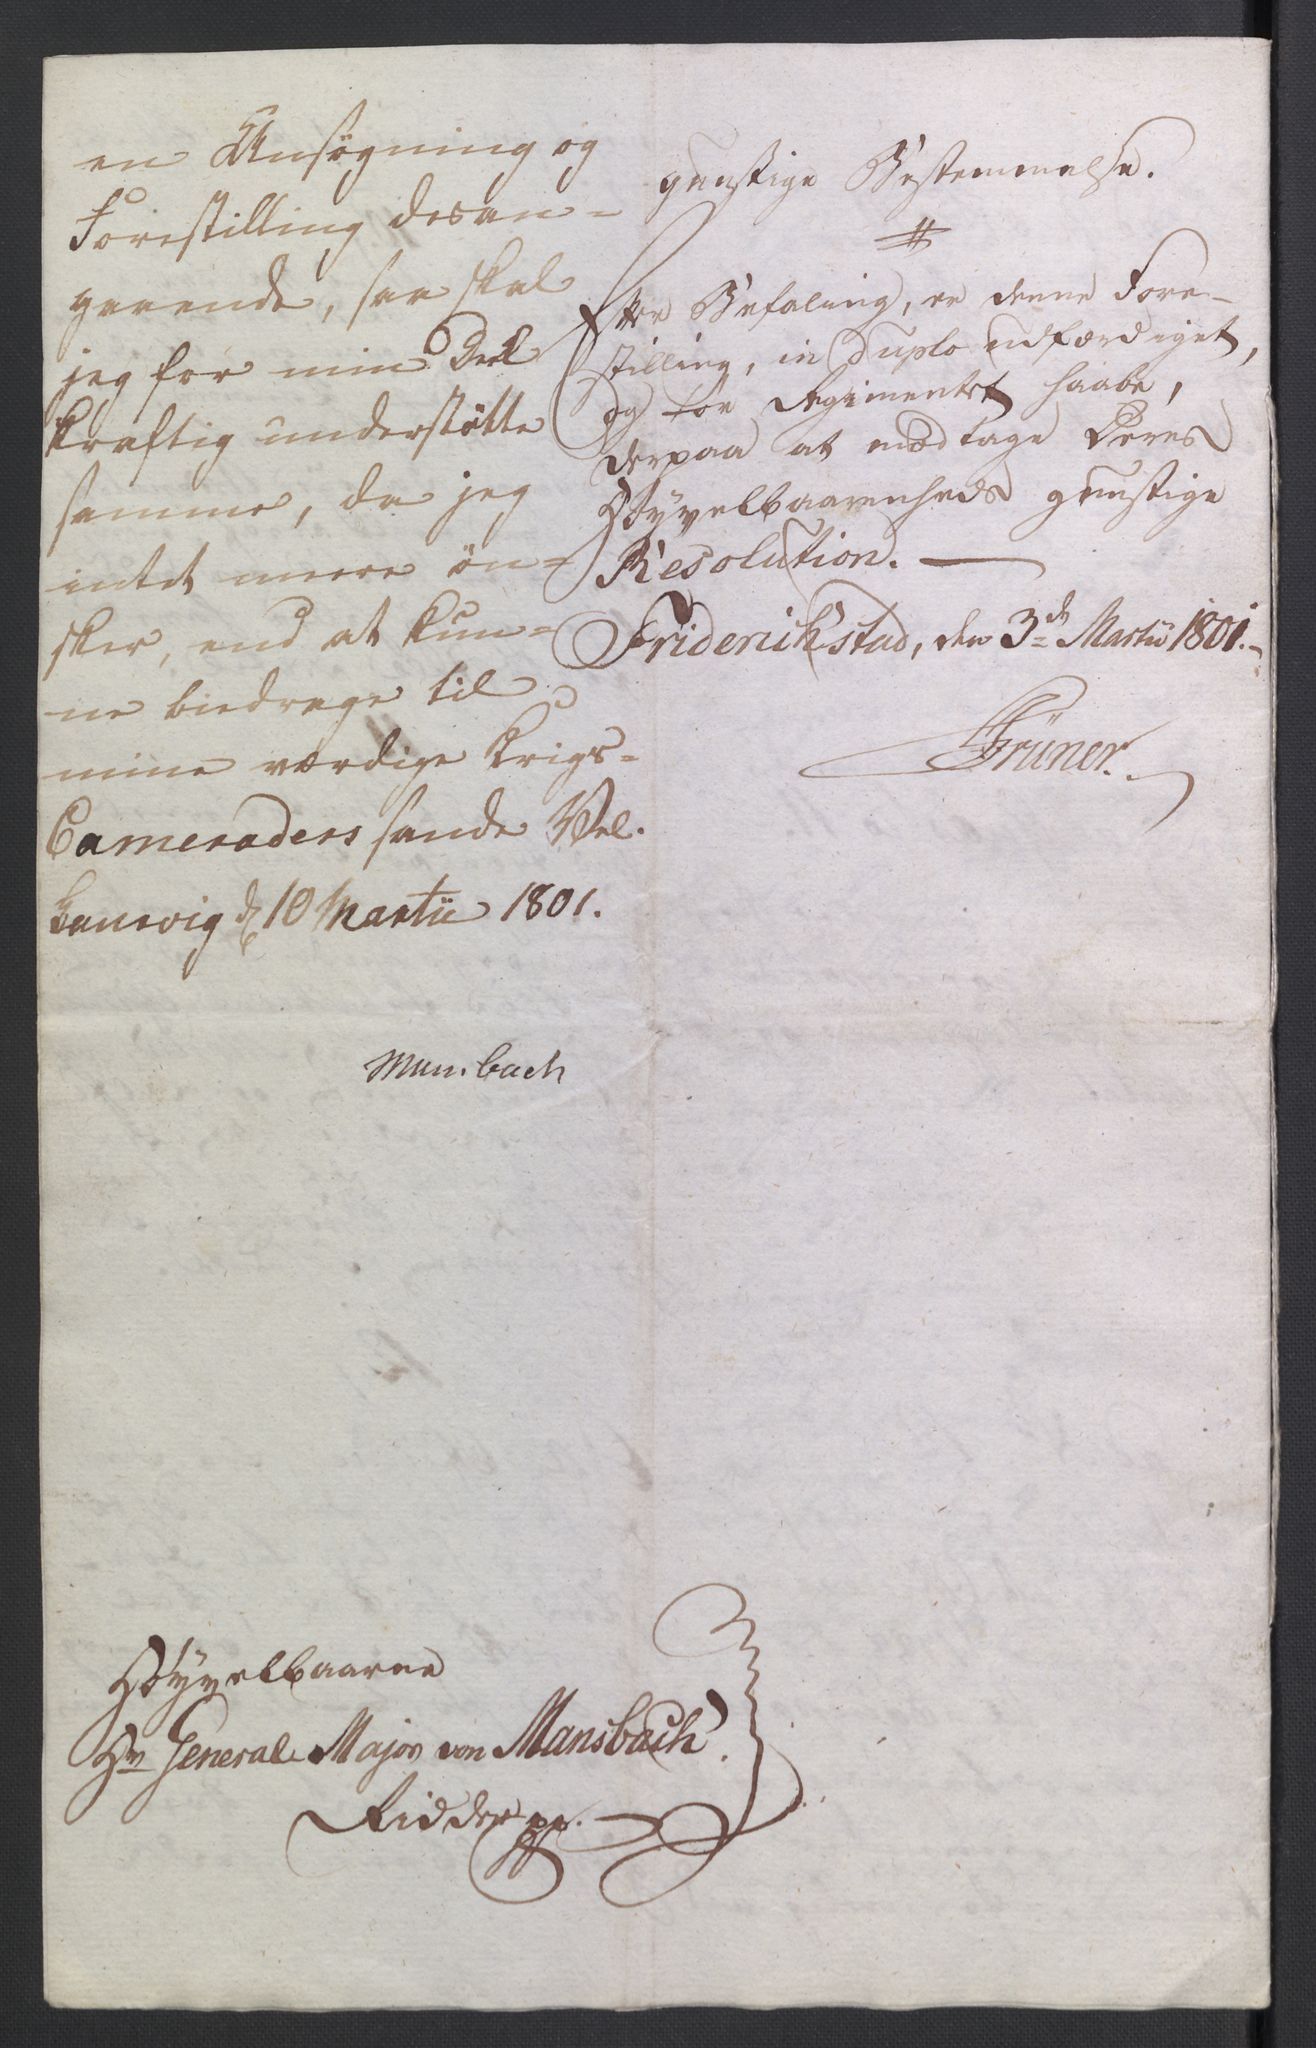 en Ansøgning og
Forestilling desan=
gaaende, saa skal
jeg for min Deel
kraftig understötte
samme, da jeg
intet meere ön=
sker, end at kun=
ne biedrage til
mine værdige Krigs=
Cameraders sande Vel.
Laurvig d 10 Martii 1801.
Mansbach
gunstige Bestemmelse.
Efter Befaling, er denne Fore-
stilling, in duplo udfærdiget,
og tør Regimentet haabe,
derpaa at modtage Deres
Høyvelbaarenheds gunstige
Resolution. —
Friderichstad, den 3de Martii 1801.-
Grüner.
Høyvelbaarne
Hr General-Major von Mansbach
Ridder pp.